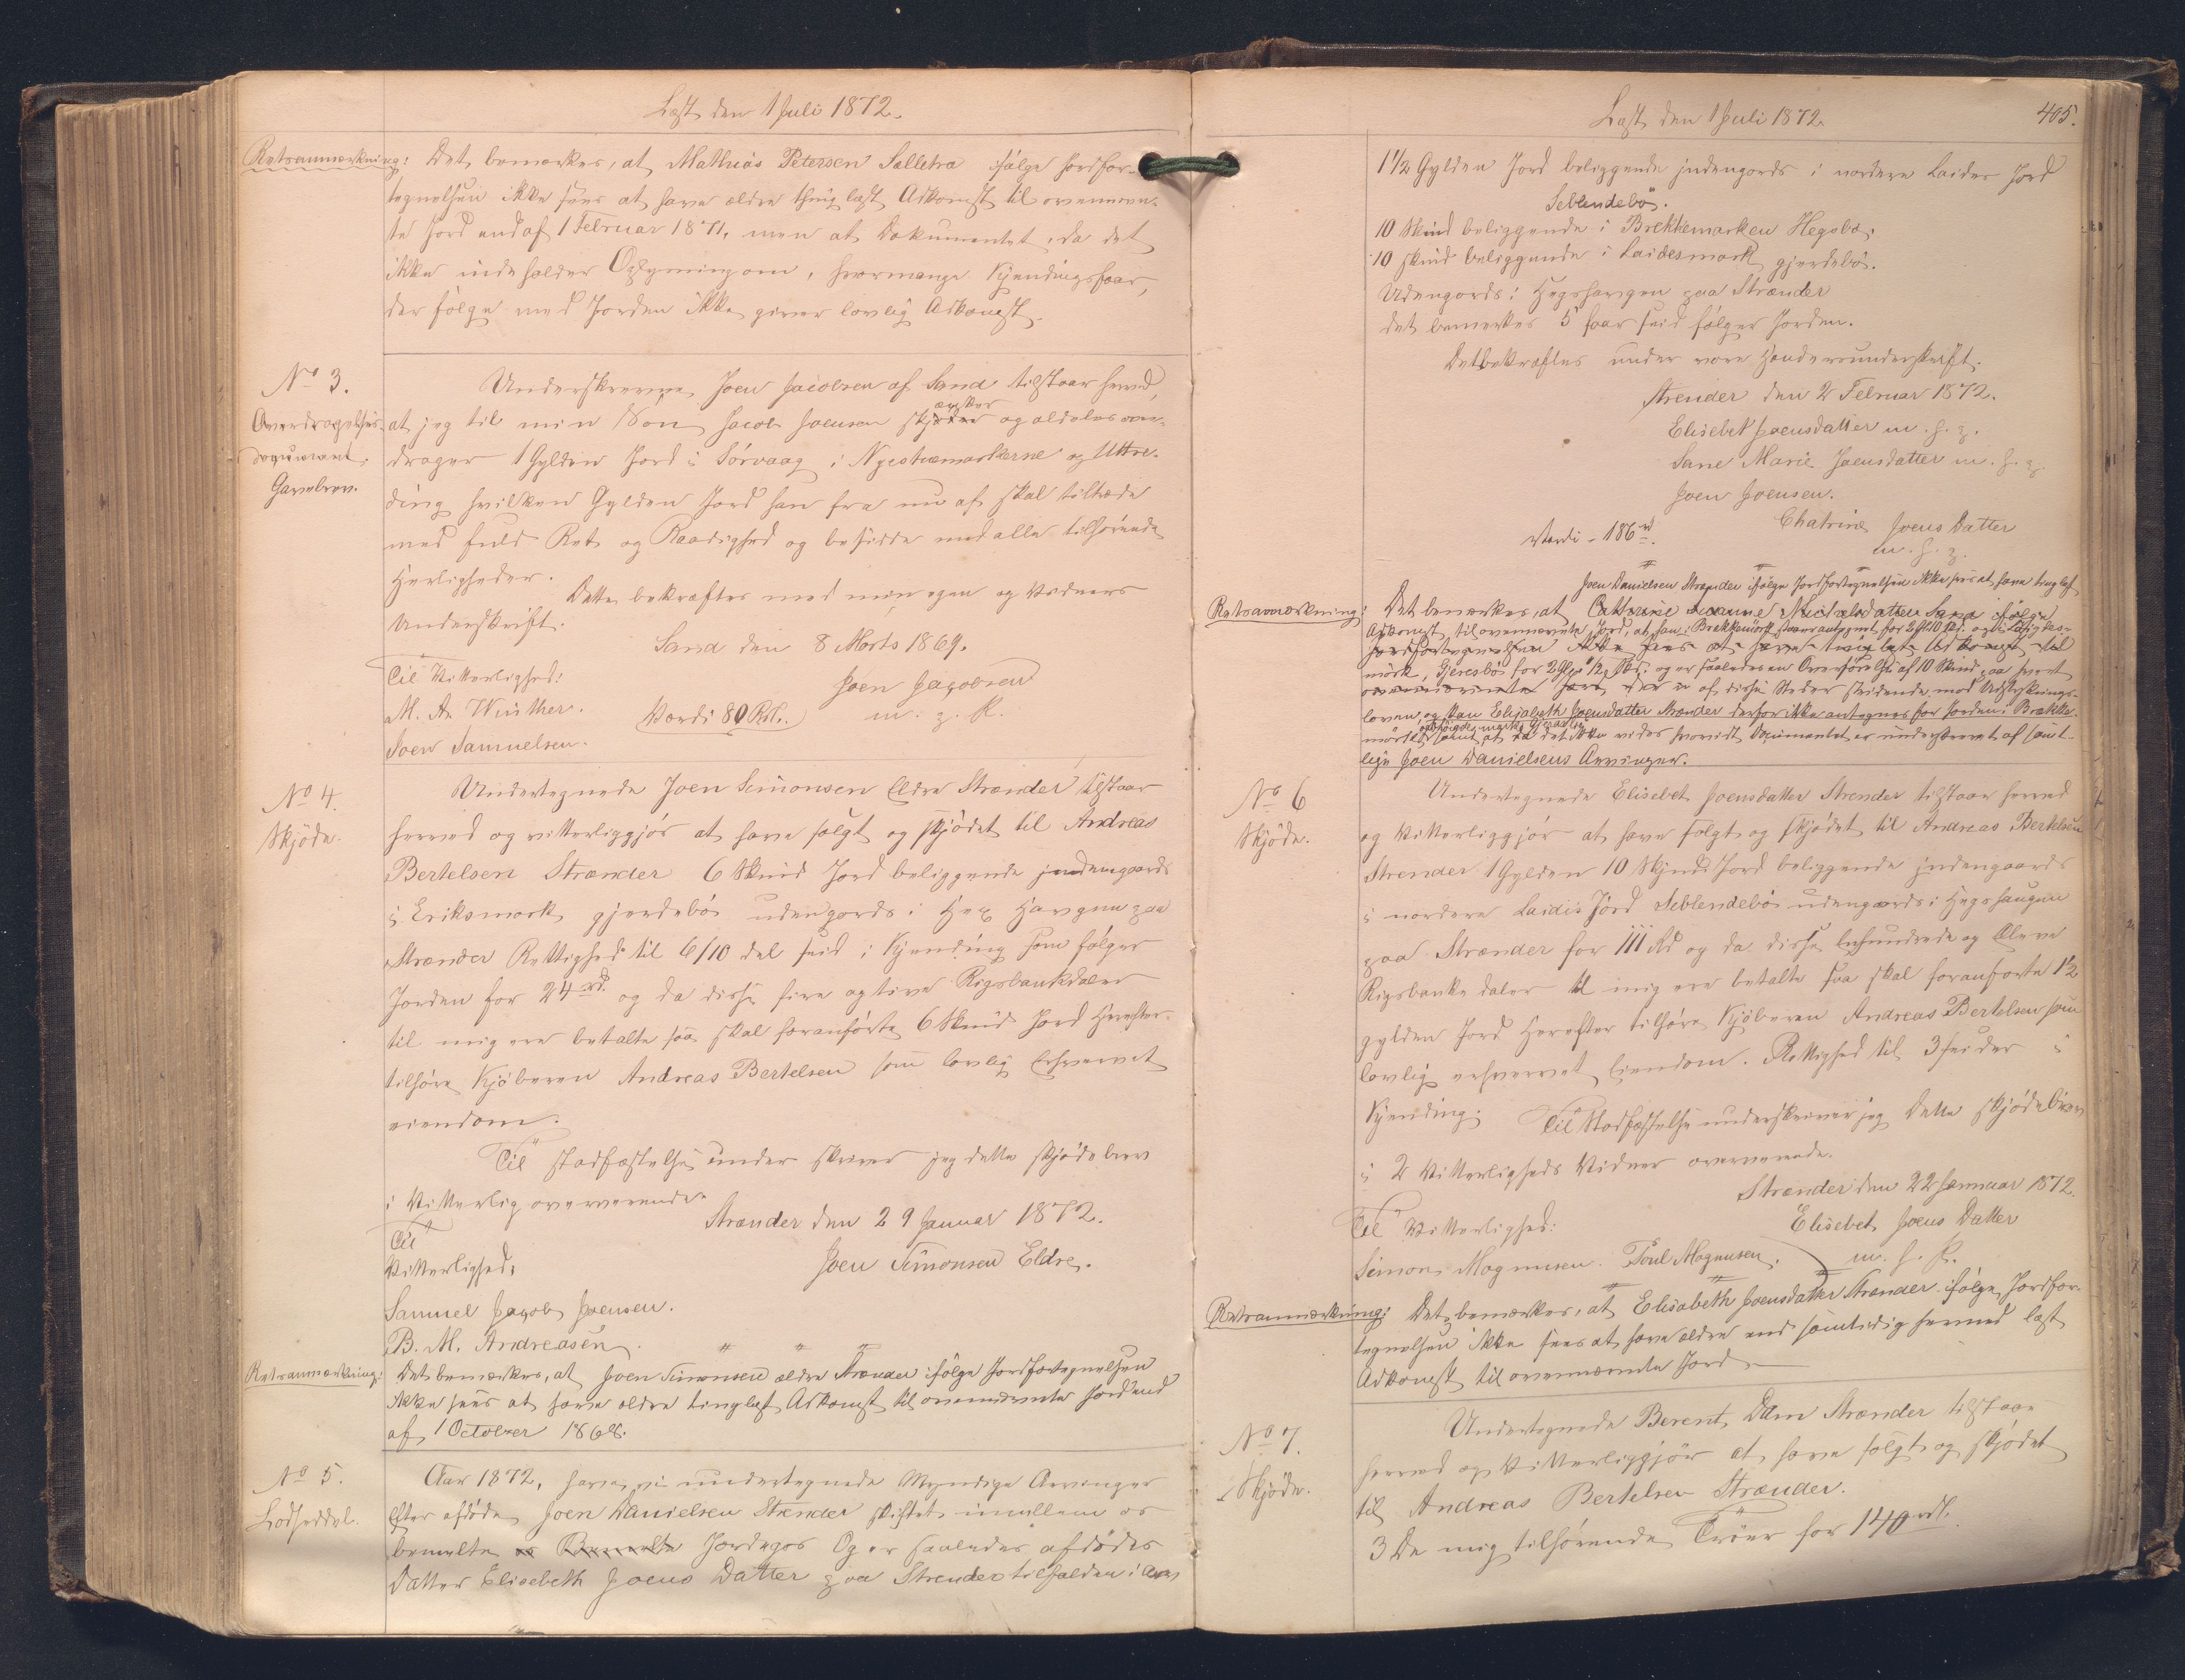 Læst den 1 Juli 1872.
Retsanmærkning: Det bemærkes, at Mathias Petersen Sælletræ ifølge Jordfor-
tegnelsen ikke sees at have ældre thinglæst Adkomst til ovennævn-
te Jord end af 1 Februar 1871, men at Dokumentet, da det
ikke indeholder Oplysning om, hvormange Kjendingsfaar,
der følge med Jorden ikke giver lovlig Adkomst.
No 3.
Overdragelses-
document.
Gavebrev.
Underskrevne Joen Jacobsen af Sand tilstaar herved,
at jeg til min Søn Jacob Joensen skjøder ønsker og aldeles over-
drager 1 Gylden Jord i Sørvaag i Nyestuemarkerne og Uttre-
ding hvilken Gylden Jord han fra nu af skal tiltræde
med fuld Ret og Raadighed og besidde med alle tilhørende
Herligheder.
Dette bekræftes med min egen og Vidners
Underskrift.
Sand den 8 Marts 1869.
Til Vitterlighed:
Joen Jacobsen
M. A. Winther. Værdi 80 Rdl. m. p. P.
Joen Samuelsen.
No 4.
Skjøde.
Undertegnede Joen Simonsen Eldre Strænder tilstaar
herved og vitterliggjør at have solgt og skjødet til Andreas
Bertelsen Strænder 6 Skind Jord beliggende indengaards
i Eriksmørk gjerdebø udengords i Hegs Haugen paa
Strænder Rettighed til 6/10 del seid i Kjending som følger
Jorden for 24 rd. og da disse fire og tive Rigsbankdaler
til mig ere betalte saa skal foranførte 6 Skind Jord Herefter
tilhøre Kjøberen Andreas Bertelsen som lovlig Erhvervet
eiendom.
Til stadfæstelse under skriver jeg dette skjøde brev
i Vitterlig overværende
Strænder den 29 Januar 1872.
Til
Vitterlighed:
Joen Simonsen Eldre.
Samuel Jacob Joensen.
B. M. Andreasen.
Retsanmærkning: Det bemærkes, at Joen Simonsen ældre Strænder ifølge Jordfortegnelsen
ikke sees at have ældre tinglæst Adkomst til ovennævnte Jord end
af 1 October 1868.
No 5.
Lodseddel.
Aar 1872, have vi undertegnede Myndige Arvinger
Efter afdøde Joen Danielsen Strænder skiftet imellem os
bemelte Jordegos Og er saaledes afdødes
Datter Elisebeth Joens Datter paa Strender tilfalden i Arv
Læst den 1 Juli 1872. 405.
1 1/2 Gylden Jord beliggende indengords i nordere Laides Jord
Seblendebø.
10 Skind beliggende i Brekkemarken Hegsbø.
10 skind beliggende i Laidesmørk gjerdebø.
Udengords i Hegshaugen paa Strænder
det bemerkes 5 faar seid følger Jorden.
Det bekræftes under vore Hænders underskrift.
Strender den 2 Februar 1872.
Elisebet Joensdatter m. h. p.
Sane Marie Joensdatter m. h. p.
Joen Joensen.
Chatrine Joens Datter
m. h. p.
Værdi - 186 rd.
Joen Danielsen Strænder ifølge Jordfortegnelsen ikke sees at have tinglæst
Retsanmærkning: Det bemærkes, at Cathrine Michelsdatter Sand ifølge
Adkomst til ovennævnte Jord, at han i Brekkemørk staaer antegnet for 2 Gl. 10 Sk. og i Laides-
jordfortegnelsen ikke sees at have tinglæst Adkomst til
mørk, Gjeresbø for 2 Gl. 1/2 Sk. og er saaledes en Overførelse af 10 Skind paa hvert
ovennævnte Jord af disse Steder stridende mod Udstyknings-
loven, og kan Elisabeth Joensdatter Strænder derfor ikke antegnes for Jorden i Brække-
mørk samt at da det ikke vides hvorvidt Documentet er underskrevet af samt-
lige Joen Danielsens Arvinger.
No 6
Skjøde.
Undertegnede Elisebet Joensdatter Strender tilstaar herved
og Vitterliggjør at have solgt og skjødet til Andreas Bertelsen
Strender 1 Gylden 10 Skjnd Jord beliggende indengaards
i nordere Laidis Jørd Seblendebø udengaards i Hegs haugen
paa Strænder for 111 Rd og da disse Enhundrede og Eleve
Rigsbanke daler til mig ere betalte saa skal foranførte 1 1/2
gylden Jord Herefter tilhøre Kjøberen Andreas Bertelsen som
lovlig erhvervet Eiendom. Rettighed til 3 seider i
Kjending. Til Stadfæstelse underskriver jeg dette skjødebrev
i 2 Vitterligheds Vidner overværende.
Strænder den 22 Januar 1872.
Til Vitterlighed:
Elisebet Joens Datter
Simon Magnusen. Poul Magnusen. m. h. P.
Retsanmærkning: Det bemærkes, at Elisabeth Joensdatter Strænder ifølge Jordfor-
tegnelsen ikke sees at have ældre end samtidig hermed læst
Adkomst til ovennævnte Jord
No 7.
Skjøde.
Undertegnede Berent Dam Strænder tilstaar
herved og Vitterliggjør at have solgt og skjødet
til Andreas Bertelsen Strænder.
3 De mig tilhørende Trøer for 140 rdl.